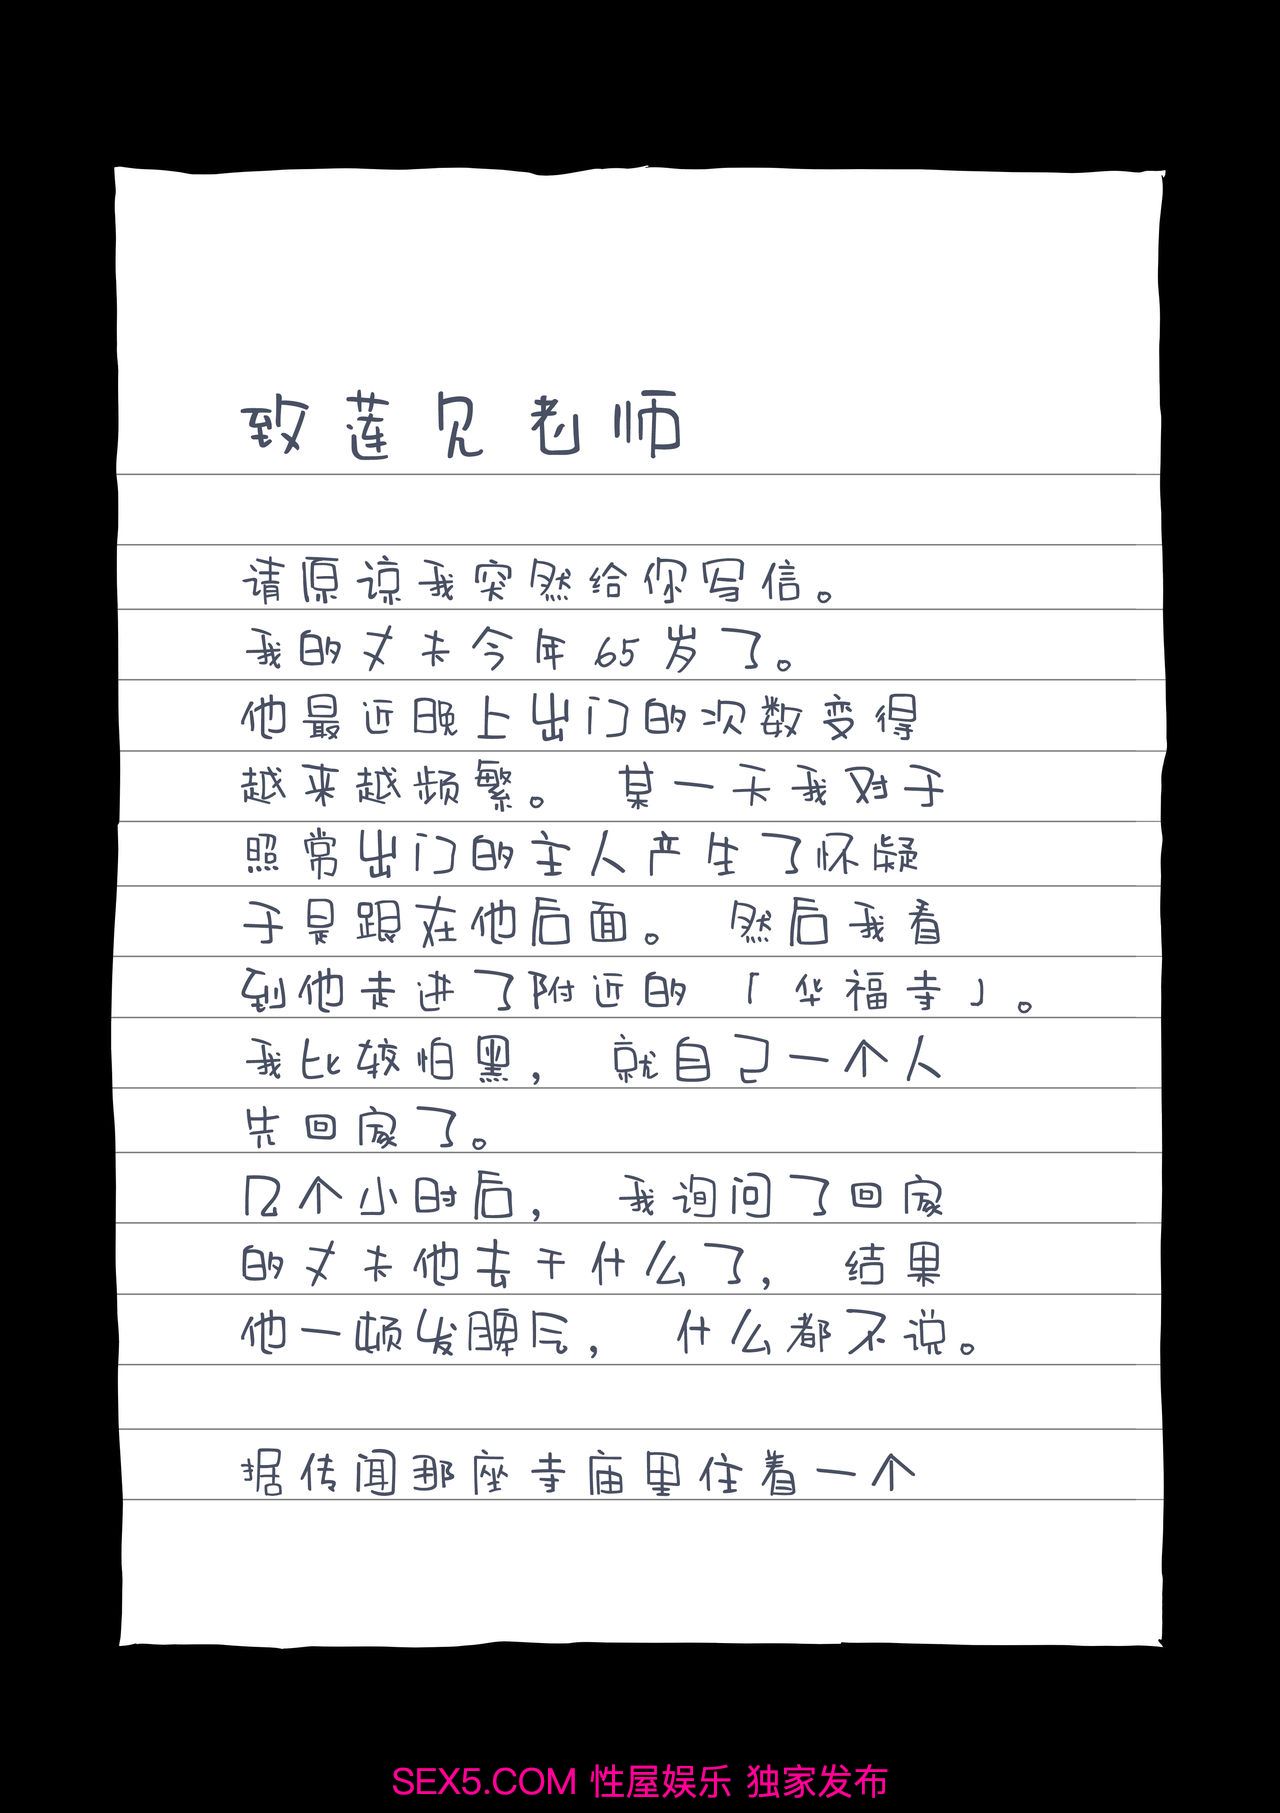 致莲见老师
请原谅我突然给你写信。
我的丈夫今年65岁了。
他最近晚上出门的次数变得
越来越频繁。 某一天我对于
照常出门的主人产生了怀疑
于是跟在他后面。 然后我看
到他走进了附近的「华福寺」。
我比较怕黑， 就自己一个人
先回家了。
几个小时后， 我询问了回家
的丈夫他去干什么了， 结果
他一顿发脾气， 什么都不说。
据传闻那座寺庙里住着一个
SEX5.COM 性屋娱乐 独家发布